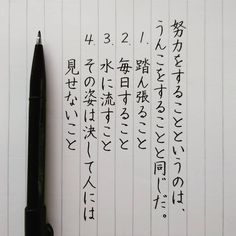 努力をすることというのは、
うんこをすることと同じだ。
1. 踏ん張ること
2. 毎日すること
3. 水に流すこと
4. その姿は決して人には
見せないこと